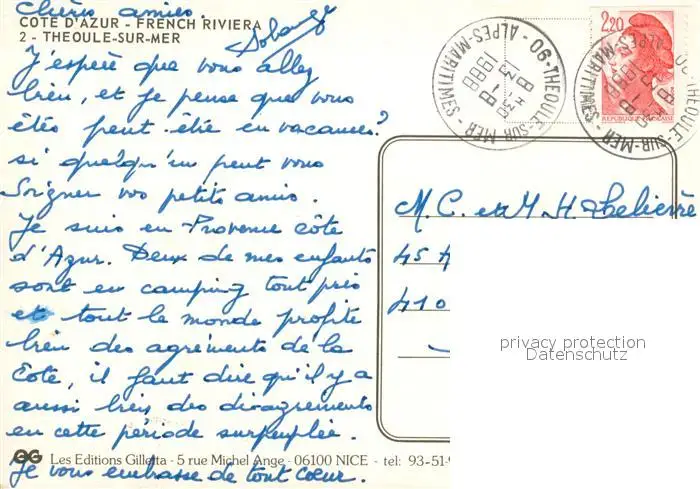 Chères amies.
COTE D'AZUR - FRENCH RIVIERA
2 - THEOULE-SUR-MER
Solange
J'espère que vous allez
bien, et je pense que vous
êtes peut-être en vacances?
si quelqu'un peut vous
Soigner vos petits amis.
Je suis en Provence côte
d'Azur. Deux de mes enfants
sont en camping tout près
et tout le monde profite
bien des agréments de la
Côte, il faut dire qu'il y a
aussi bien des désagréments
en cette période surpeuplée.
GG Les Editions Gilletta - 5 rue Michel Ange - 06100 NICE - tel: 93-51-
Je vous embrasse de tout cœur.
2,20
REPUBLIQUE FRANÇAISE
06-THEOULE-SUR-MER - ALPES-MARITIMES
8 - 8
1988
06-THEOULE-SUR-MER - ALPES-MARITIMES
M. C. et M. H.
45
410
privacy protection
Datenschutz